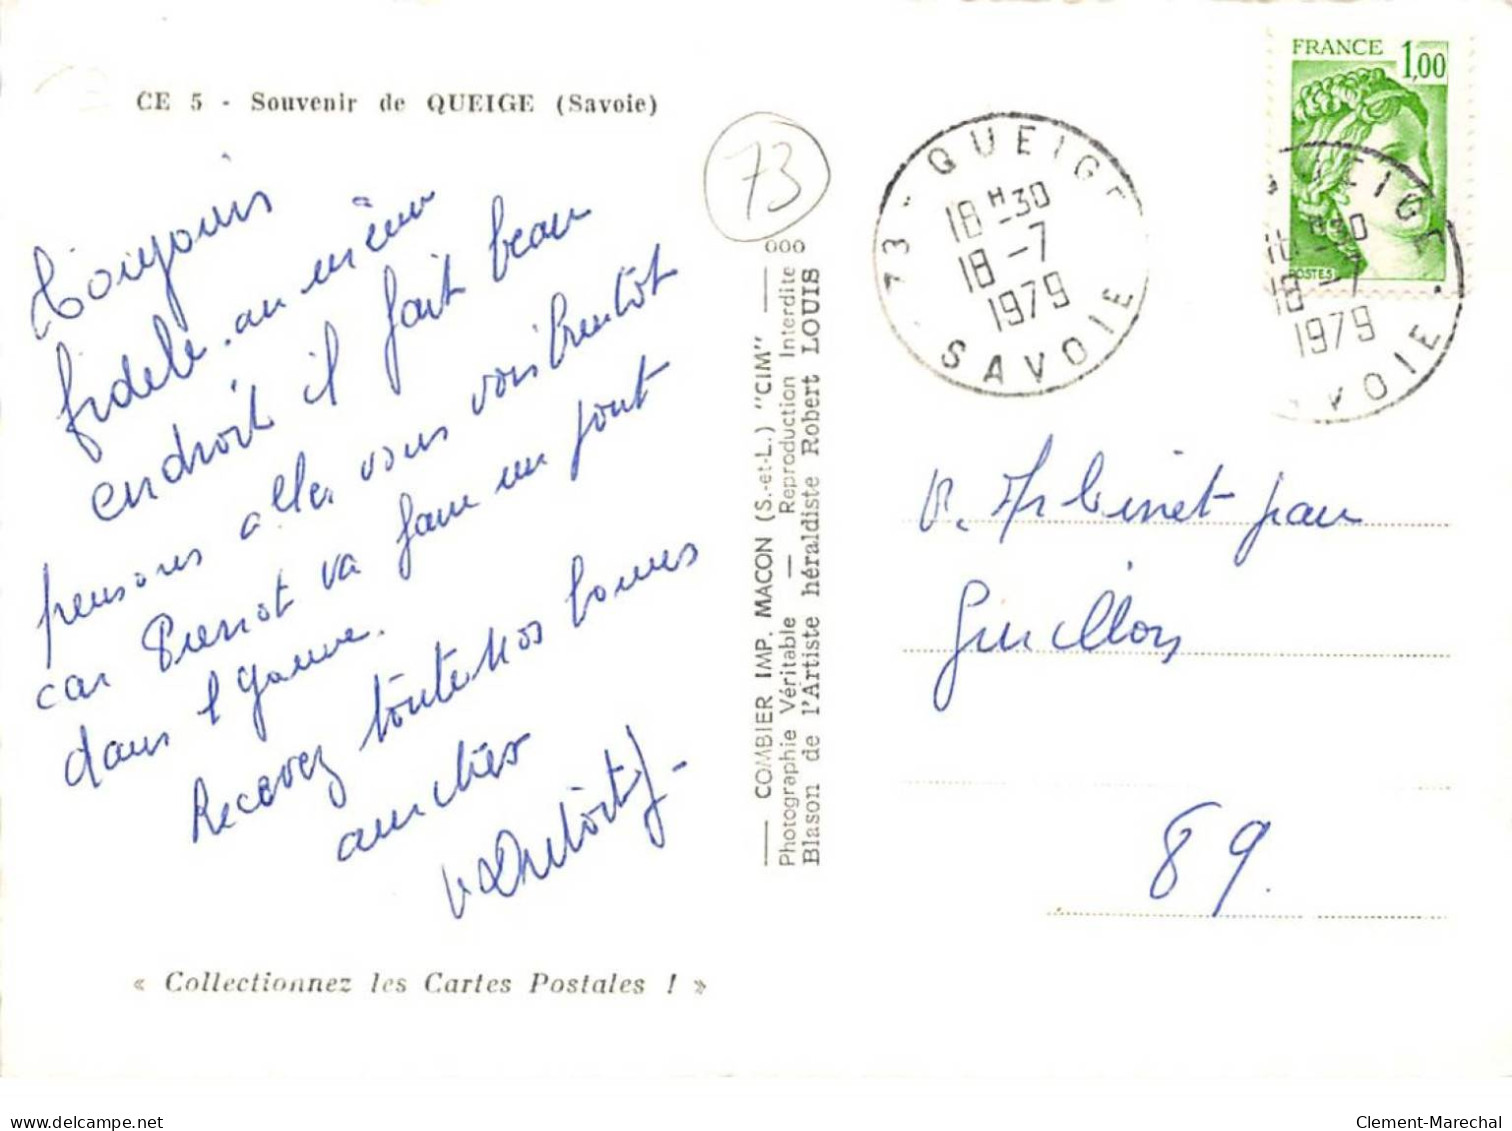 CE 5 - Souvenir de QUEIGE (Savoie)
Toujours
fidele au même
endroit il fait beau
pensons aller vous voir bientôt
car Pierrot va faire un pont
dans l'Yonne.
Recevez toute nos bonnes
amitiés
« Collectionnez les Cartes Postales ! »
73
000
COMBIER IMP. MACON (S.-et-L.) "CIM"
Photographie Véritable — Reproduction Interdite
Blason de l'Artiste héraldiste Robert LOUIS
73 - QUEIGE
18 H 30
18 - 7
1979
SAVOIE
FRANCE 1,00
POSTES
QUEIGE
18 H 30
18 - 7
1979
VOIE
par
Guillon
89.
www.delcampe.net
Clement-Marechal